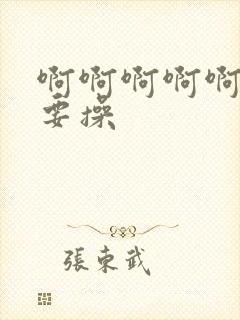 啊啊啊啊啊
要操
張東武